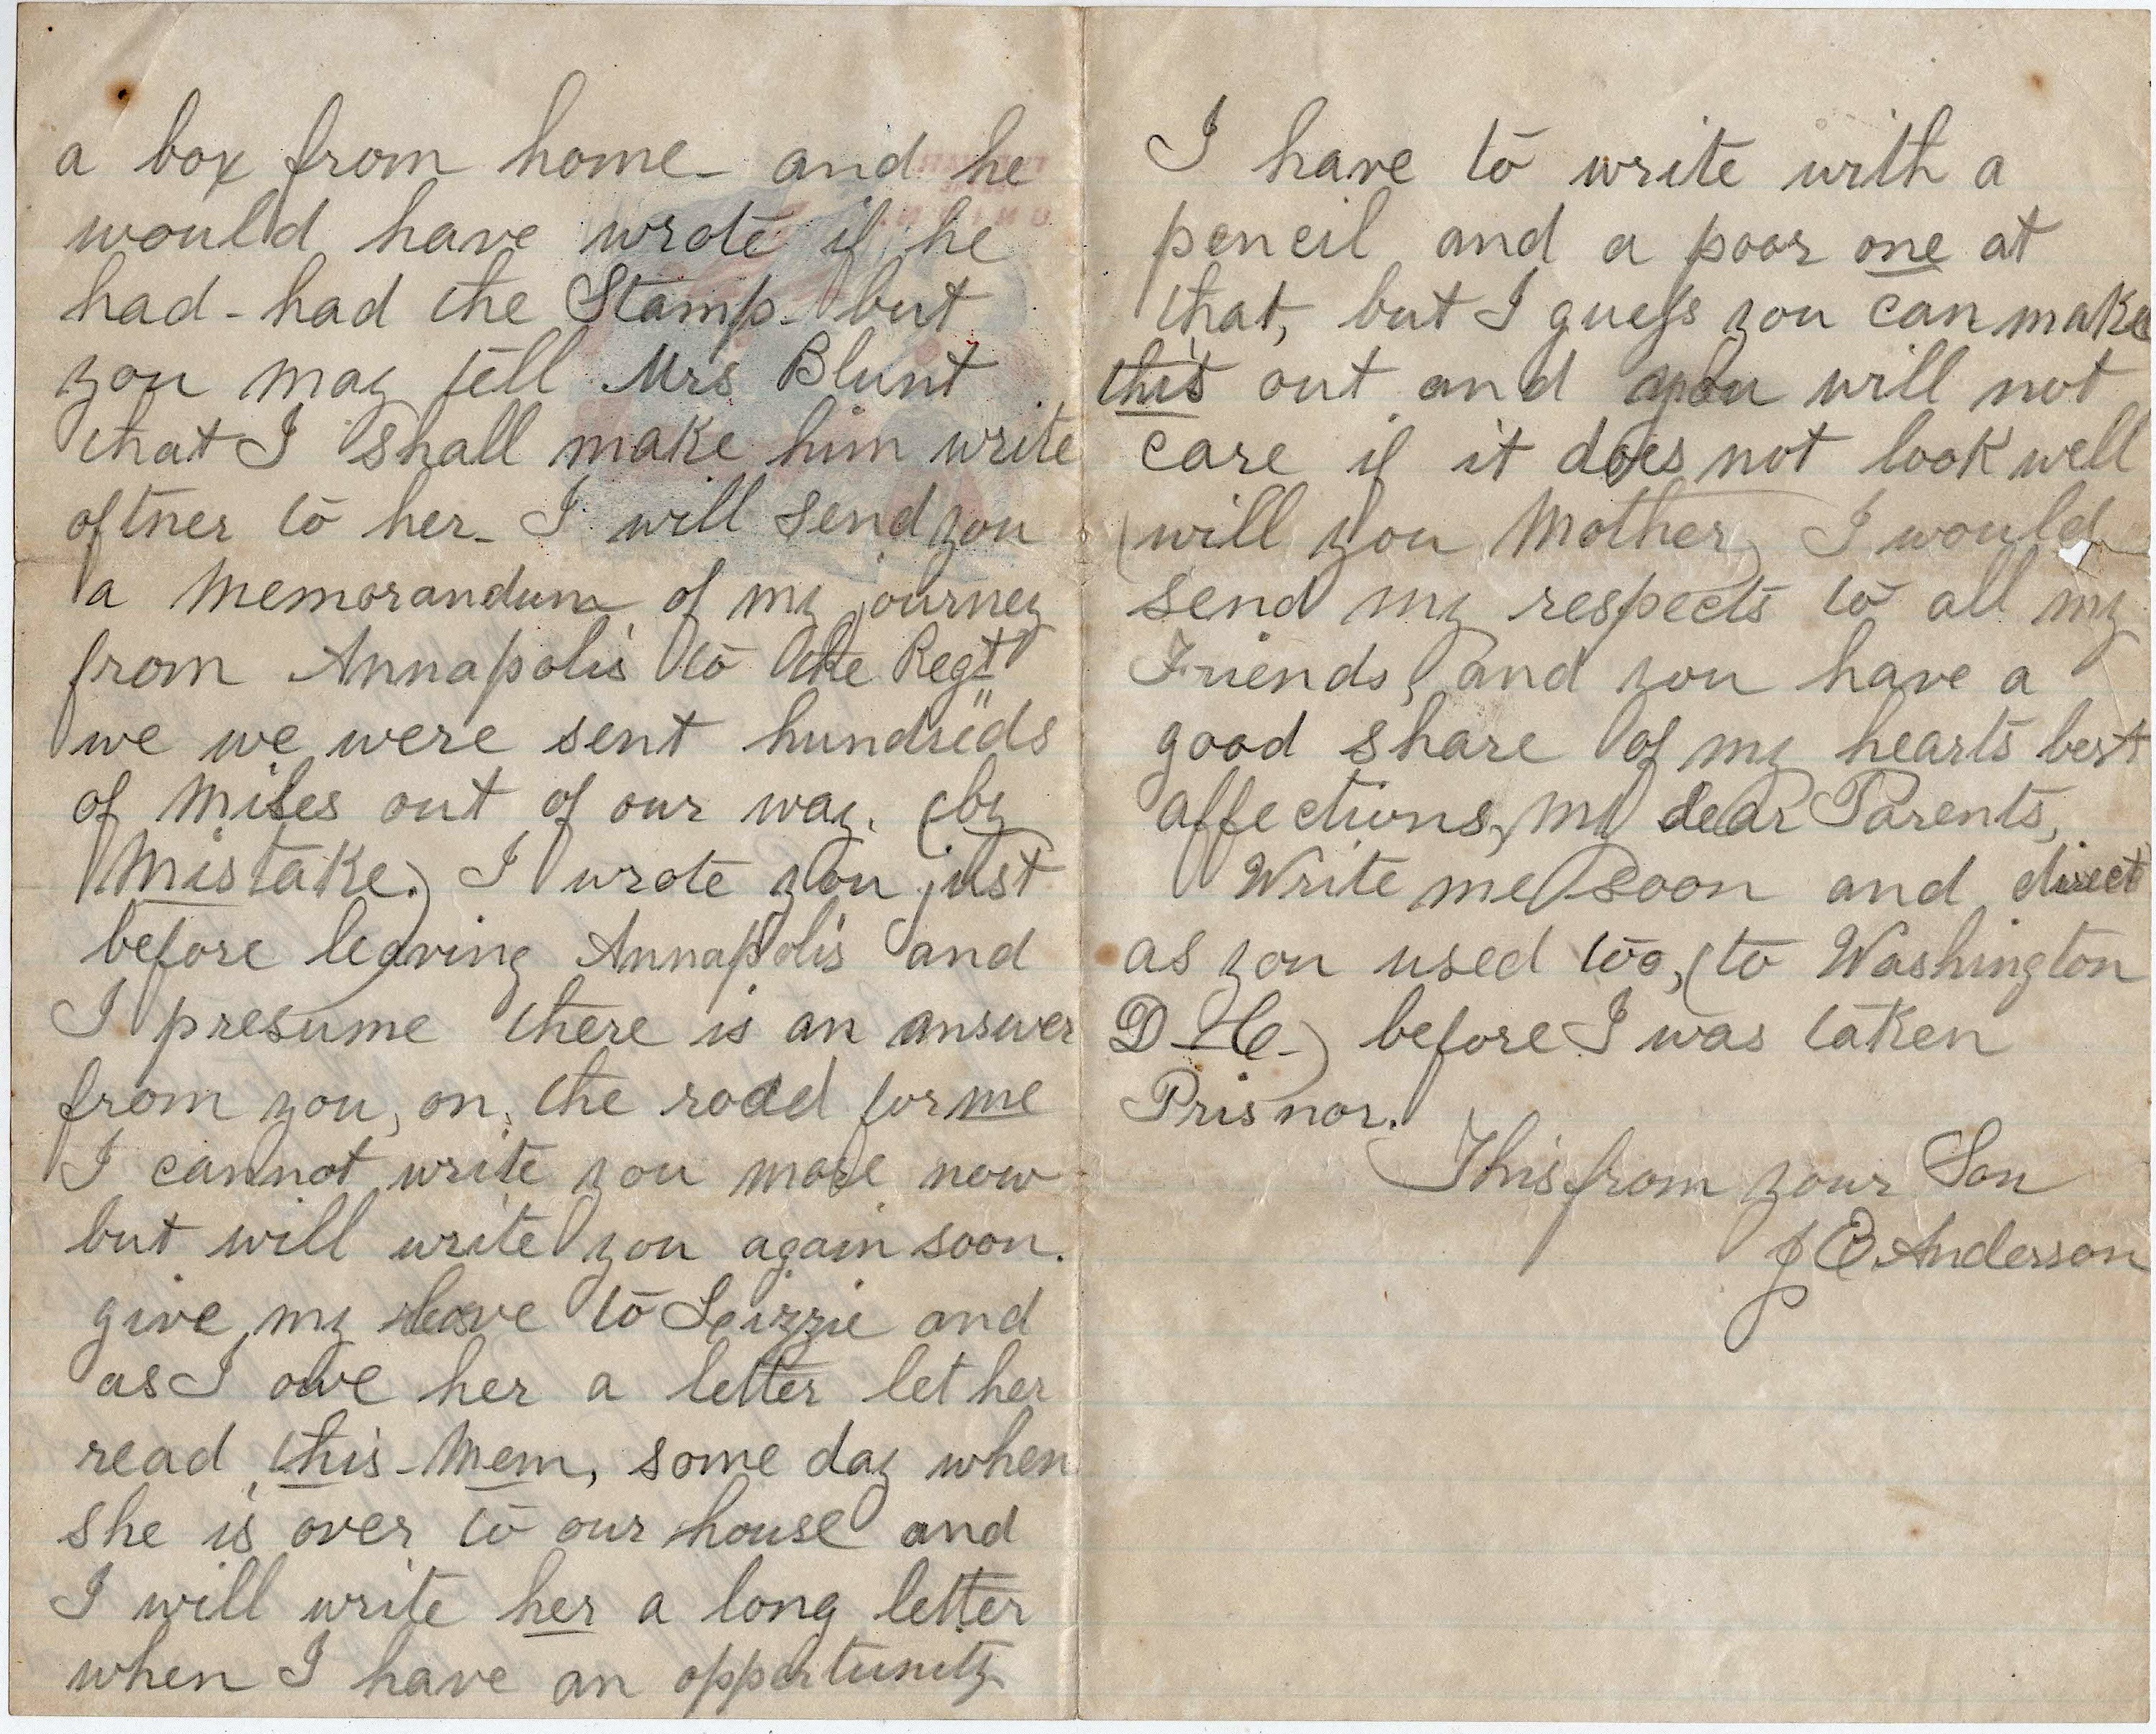 a box from home - and he
would have wrote if he
had - had the Stamp - but
you may tell Mrs Blunt
that I shall make him write
oftner to her - I will send you
a Memorandum of my journey
from Annapolis to the Regt
we we were sent hundreds
of Miles out of our way. (by
Mistake.) I wrote you just
before leaving Annapolis and
I presume there is an answer
from you, on, the road for me
I cannot write you more now
but will write you again soon.
give my love to Leizzie and
as I owe her a letter let her
read this - Mem, some day when
she is over to our house and
I will write her a long letter
when I have an opportunity
I have to write with a
pencil and a poor one at
that, but I guess you can make
this out and you will not
care if it does not look well
(will you Mother) I would
send my respects to all my
Friends, and you have a
good share of my hearts best
affections, my dear Parents,
Write me soon and direct
as you used too, (to Washington
D-C-) before I was taken
Prisnor.
This from your Son
J E Anderson